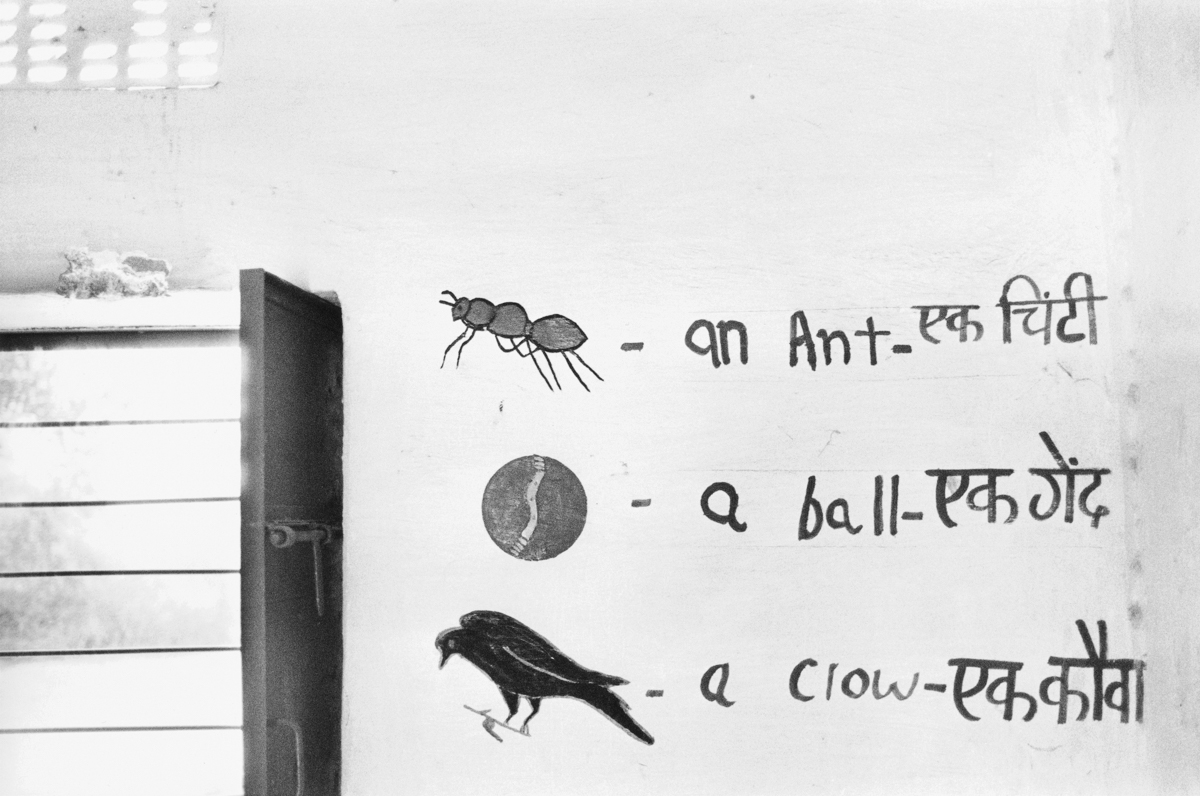 - an Ant-एक चिंटी
- a ball-एक गेंद
- a Crow-एक कौवा